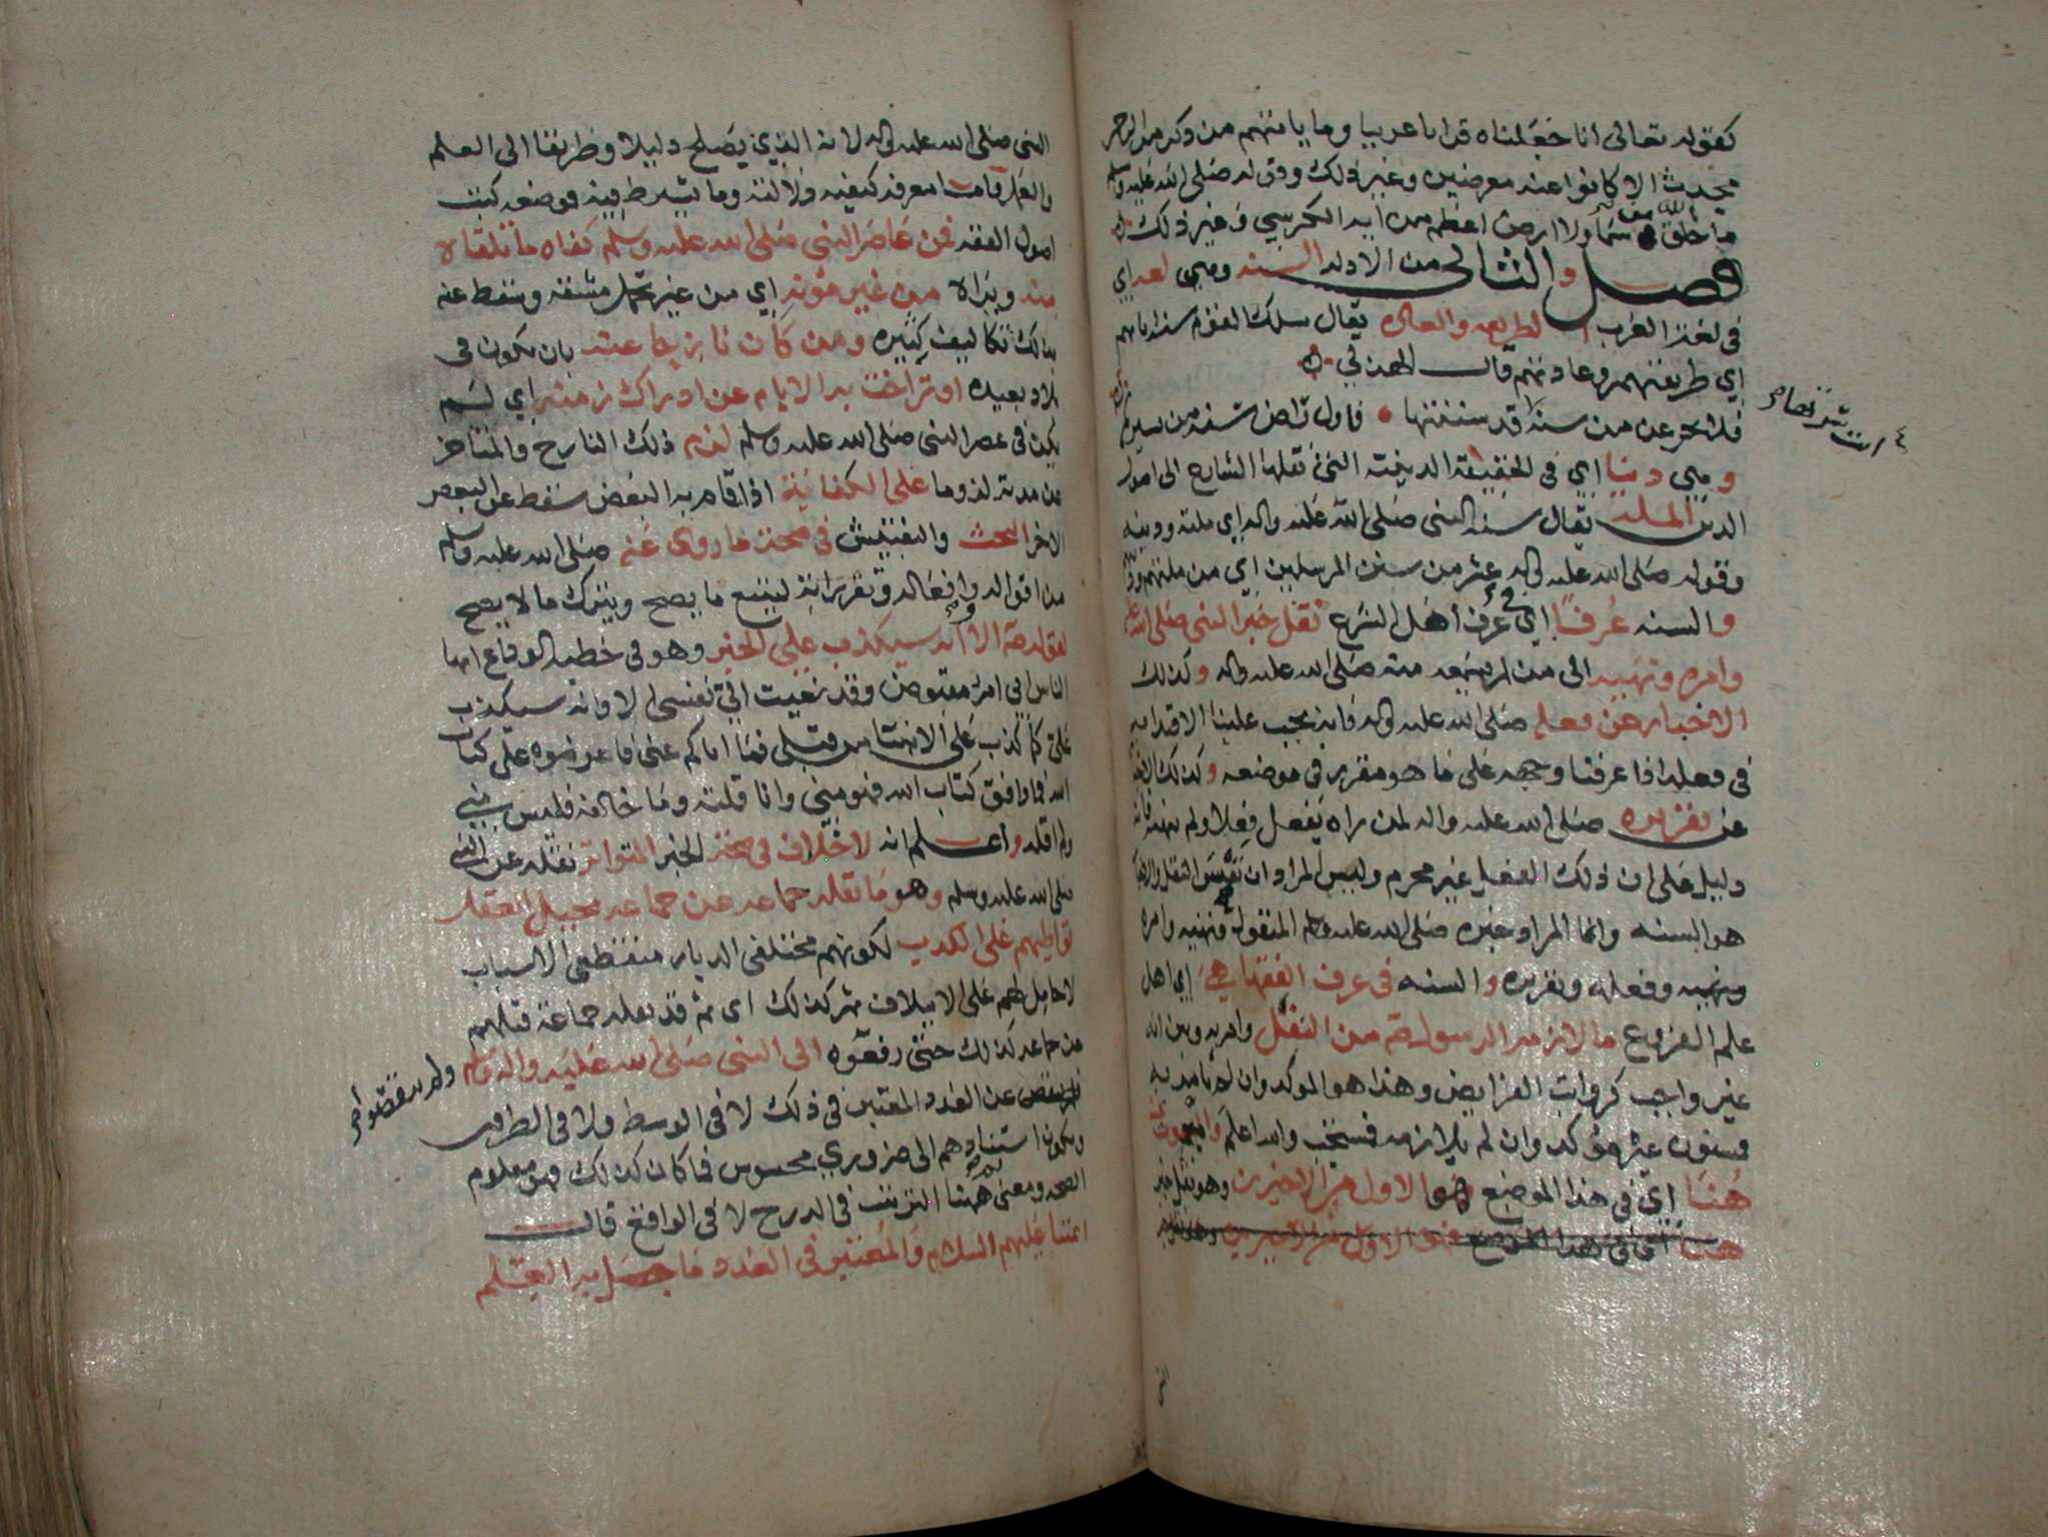 كقوله تعالى انا جعلناه قرانا عربيا وما ياتيهم من ذكر من الرحمن
محدث الا كانوا عنه معرضين وغير ذلك وقوله صلى الله عليه وسلم
ما خلق الله من سماء ولا ارض اعظم من اية الكرسي وغير ذلك
فصل والثاني من الادلة السنة وهي لغة اي
في لغة العرب الطريقة والعادة يقال سلك القوم سنة ابائهم
اي طريقتهم وعادتهم قال الهذلي
فلا تجزعن من سنة قد سننتها فاول راض سنة من يسيرها
وهي دينا اي في الحقيقة الدينية التي نقلها الشارع الى اصول
الدين الملة يقال سنة النبي صلى الله عليه واله اي ملته ودينه
وقوله صلى الله عليه واله عشر من سنن المرسلين اي من ملتهم
والسنه عرفا اي في عرف اهل الشرع نقل خبر النبي صلى الله عليه
وامره ونهييه الى من لم يسمعه منه صلى الله عليه واله وكذلك
الاخبار عن فعله صلى الله عليه واله فانه يجب علينا الاقتدا به
في فعله اذا عرفنا وجهه على ما هو مقرر في موضعه وكذلك الاخبار
عن تقريره صلى الله عليه واله لمن راه يفعل فعلا ولم ينهه فانه
دليل على ان ذلك الفعل غير محرم وليس المراد ان نفس النقل والاخبار
هو السنه وانما المراد خبره صلى الله عليه وسلم المنقول ونهييه وامره
ونهيه وفعله وتقريره والسنه في عرف الفقها هي اي اهل
علم الفروع ما لازمه الرسول صلعم من النفل وامر به وبين انه
غير واجب كرواتب الفرايض وهذا هو الموكد وان لم يامر به
فمسنون غير موكد وان لم يلازمه فمستحب والله اعلم والمبحوث عنه
هنا اي في هذا الموضع هو الاول من الاخيرين وهو نقل خبر
هنا اي في هذا الموضع هو الاول من الاخيرين وهو نقل خبر
النبي صلى الله عليه واله لانه الذي يصلح دليلا وطريقا الى العلم
والعمل فاما معرفة كيفية دلالته وما يشترط فيه فموضعه كتب
اصول الفقه فمن عاصر النبي صلى الله عليه وسلم كفاه ما تلقاه
منه ويراه من غير مؤنة اي من غير تحمل مشقة وسقط عنه
بذلك تكاليف كثيره ومن كان نازحا عنه بان يكون في
بلاد بعيده او تراخت به الايام عن ادراك زمنه اي لم
يكن في عصر النبي صلى الله عليه وسلم لزم ذلك النازح والمتاخر
عن مدته لزوما على الكفاية اذا قام به البعض سقط عن البعض
الاخر البحث والتفتيش في صحة ما روي عنه صلى الله عليه وسلم
من اقواله وافعاله وتقريراته ليتبع ما يصح ويترك ما لا يصح
لقوله صلعم الا وانه سيكذب علي الخبر وهو في خطبة الوداع ايها
الناس اني امرؤ مقبوض وقد نعيت الي نفسي الا وانه سيكذب
علي كما كذب على الانبيا من قبلي فما اتاكم عني فاعرضوه على كتاب
الله فما وافق كتاب الله فهو مني وانا قلته وما خالفه فليس مني
ولم اقله واعلم انه لا خلاف في صحة الخبر المتواتر نقله عن النبي
صلى الله عليه وسلم وهو ما نقله جماعه عن جماعه يحيل العقل
تواطيهم على الكذب لكونهم مختلفي الديار منقطعي الاسباب
لا حامل لهم على الايتلاف ثم كذلك اي ثم قد نقله جماعة قبلهم
عن جماعه كذلك حتى رفعوه الى النبي صلى الله عليه واله وسلم ولم ينقصوا
عن العدد المعتبر في ذلك لا في الوسط ولا في الطرف
ويكون استنادهم الى ضروري محسوس فما كان كذلك فهو معلوم
الصحه ومعنى ثم هنا الترتيب في الدرج لا في الواقع قالت
ائمتنا عليهم السلام والمعتبر في العدد ما حصل به العلم